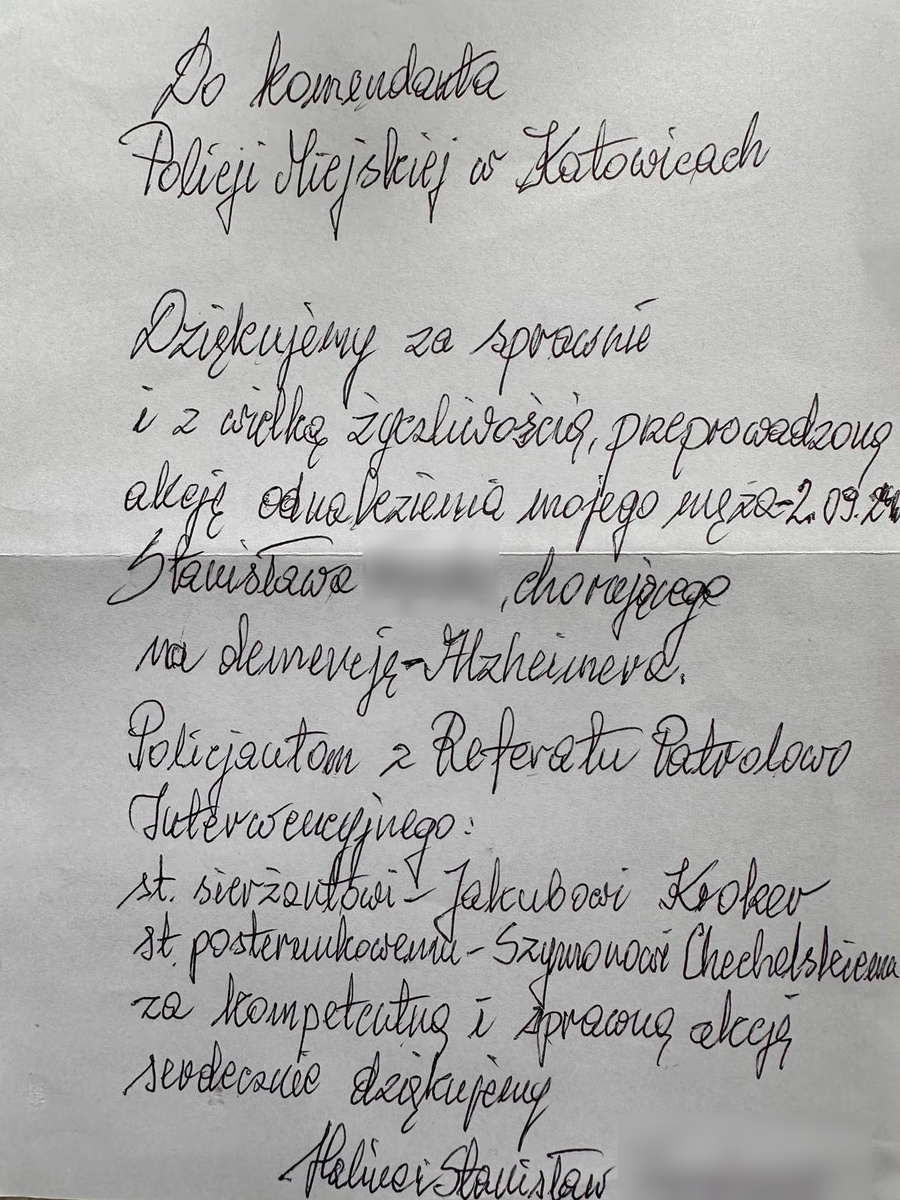 Do komendanta
Policji Miejskiej w Katowicach
Dziękujemy za sprawnie
i z wielką życzliwością, przeprowadzoną
akcję odnalezienia mojego męża-2.09.24
Stanisława , chorującego
na demencję-Alzheimera.
Policjantom z Referatu Patrolowo
Interwencyjnego:
st. sierżantowi - Jakubowi Kroker
st. posterunkowemu - Szymonowi Chechelskiemu
za kompetentną i sprawną akcję
serdecznie dziękujemy
Halina i Stanisław